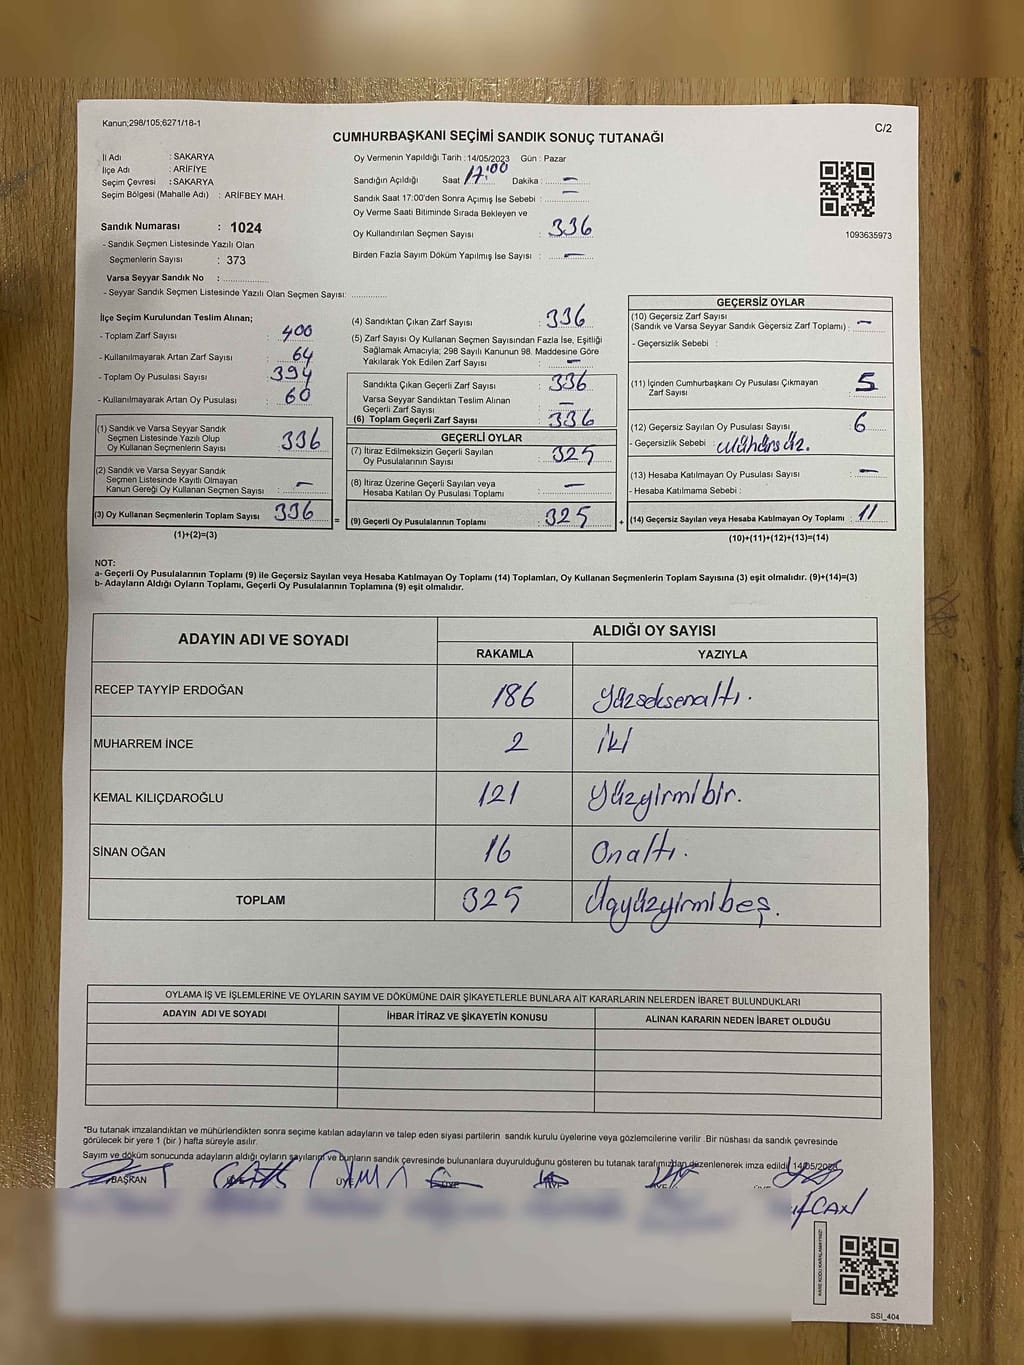 Kanun;298/105;6271/18-1
C/2
CUMHURBAŞKANI SEÇİMİ SANDIK SONUÇ TUTANAĞI
İl Adı : SAKARYA
İlçe Adı : ARİFİYE
Seçim Çevresi : SAKARYA
Seçim Bölgesi (Mahalle Adı) : ARİFBEY MAH.
Sandık Numarası : 1024
- Sandık Seçmen Listesinde Yazılı Olan
Seçmenlerin Sayısı : 373
Varsa Seyyar Sandık No :
- Seyyar Sandık Seçmen Listesinde Yazılı Olan Seçmen Sayısı:
Oy Vermenin Yapıldığı Tarih : 14/05/2023 Gün : Pazar
Sandığın Açıldığı Saat 17:00 Dakika : —
Sandık Saat 17:00'den Sonra Açımış İse Sebebi : —
Oy Verme Saati Bitiminde Sırada Bekleyen ve
Oy Kullandırılan Seçmen Sayısı : 336
Birden Fazla Sayım Döküm Yapılmış İse Sayısı : —
1093635973
İlçe Seçim Kurulundan Teslim Alınan;
- Toplam Zarf Sayısı : 400
- Kullanılmayarak Artan Zarf Sayısı : 64
- Toplam Oy Pusulası Sayısı : 394
- Kullanılmayarak Artan Oy Pusulası : 60
(1) Sandık ve Varsa Seyyar Sandık
Seçmen Listesinde Yazılı Olup
Oy Kullanan Seçmenlerin Sayısı : 336
(2) Sandık ve Varsa Seyyar Sandık
Seçmen Listesinde Kayıtlı Olmayan
Kanun Gereği Oy Kullanan Seçmen Sayısı : —
(3) Oy Kullanan Seçmenlerin Toplam Sayısı : 336
(1)+(2)=(3)
(4) Sandıktan Çıkan Zarf Sayısı : 336
(5) Zarf Sayısı Oy Kullanan Seçmen Sayısından Fazla İse, Eşitliği
Sağlamak Amacıyla; 298 Sayılı Kanunun 98. Maddesine Göre
Yakılarak Yok Edilen Zarf Sayısı : —
Sandıkta Çıkan Geçerli Zarf Sayısı : 336
Varsa Seyyar Sandıktan Teslim Alınan
Geçerli Zarf Sayısı : —
(6) Toplam Geçerli Zarf Sayısı : 336
GEÇERLİ OYLAR
(7) İtiraz Edilmeksizin Geçerli Sayılan
Oy Pusulalarının Sayısı : 325
(8) İtiraz Üzerine Geçerli Sayılan veya
Hesaba Katılan Oy Pusulası Toplamı : —
= (9) Geçerli Oy Pusulalarının Toplamı : 325
GEÇERSİZ OYLAR
(10) Geçersiz Zarf Sayısı
(Sandık ve Varsa Seyyar Sandık Geçersiz Zarf Toplamı) : —
- Geçersizlik Sebebi :
(11) İçinden Cumhurbaşkanı Oy Pusulası Çıkmayan
Zarf Sayısı : 5
(12) Geçersiz Sayılan Oy Pusulası Sayısı : 6
- Geçersizlik Sebebi : Mühürsüz.
(13) Hesaba Katılmayan Oy Pusulası Sayısı : —
- Hesaba Katılmama Sebebi :
+ (14) Geçersiz Sayılan veya Hesaba Katılmayan Oy Toplamı : 11
(10)+(11)+(12)+(13)=(14)
NOT:
a- Geçerli Oy Pusulalarının Toplamı (9) ile Geçersiz Sayılan veya Hesaba Katılmayan Oy Toplamı (14) Toplamları, Oy Kullanan Seçmenlerin Toplam Sayısına (3) eşit olmalıdır. (9)+(14)=(3)
b- Adayların Aldığı Oyların Toplamı, Geçerli Oy Pusulalarının Toplamına (9) eşit olmalıdır.
ADAYIN ADI VE SOYADI
ALDIĞI OY SAYISI
RAKAMLA YAZIYLA
RECEP TAYYİP ERDOĞAN 186 Yüzseksenaltı.
MUHARREM İNCE 2 İki
KEMAL KILIÇDAROĞLU 121 Yüzyirmibir.
SİNAN OĞAN 16 Onaltı.
TOPLAM 325 Üçyüzyirmibeş.
OYLAMA İŞ VE İŞLEMLERİNE VE OYLARIN SAYIM VE DÖKÜMÜNE DAİR ŞİKAYETLERLE BUNLARA AİT KARARLARIN NELERDEN İBARET BULUNDUKLARI
ADAYIN ADI VE SOYADI İHBAR İTİRAZ VE ŞİKAYETİN KONUSU ALINAN KARARIN NEDEN İBARET OLDUĞU
*Bu tutanak imzalandıktan ve mühürlendikten sonra seçime katılan adayların ve talep eden siyasi partilerin sandık kurulu üyelerine veya gözlemcilerine verilir. Bir nüshası da sandık çevresinde
görülecek bir yere 1 (bir) hafta süreyle asılır.
Sayım ve döküm sonucunda adayların aldığı oyların sayılarını ve bunların sandık çevresinde bulunanlara duyurulduğunu gösteren bu tutanak tarafımızdan düzenlenerek imza edildi. 14/05/2023
BAŞKAN ÜYE
CAN
KARE KODU KARALAMAYINIZ!
SSI_404